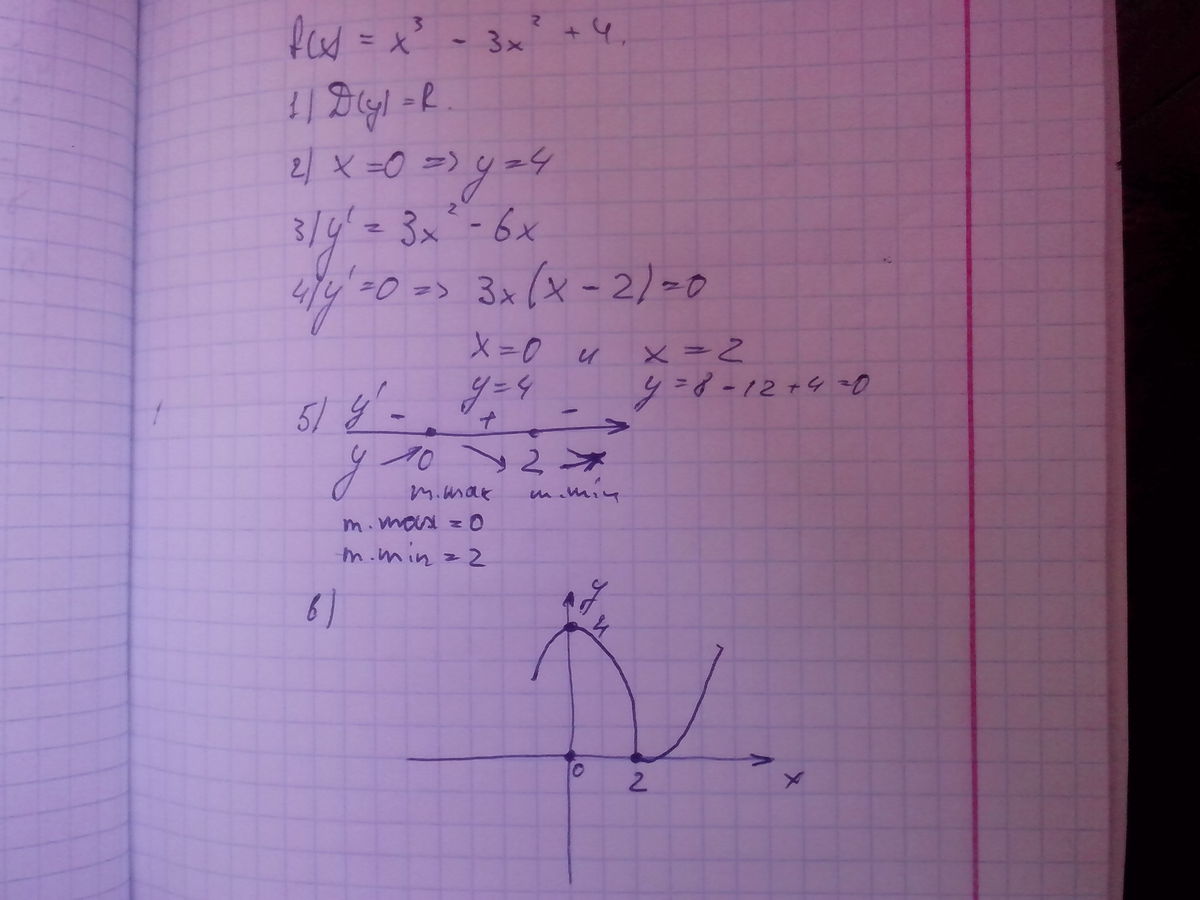 f(x) = x³ - 3x² + 4.
1) D(y) = R.
2) x = 0 => y = 4
3) y' = 3x² - 6x
4) y' = 0 => 3x(x - 2) = 0
x = 0 и x = 2
y = 4 y = 8 - 12 + 4 = 0
5) y' - + -
y 0 2
т.max т.min
т.max = 0
т.min = 2
6)
y
4
0
2
x